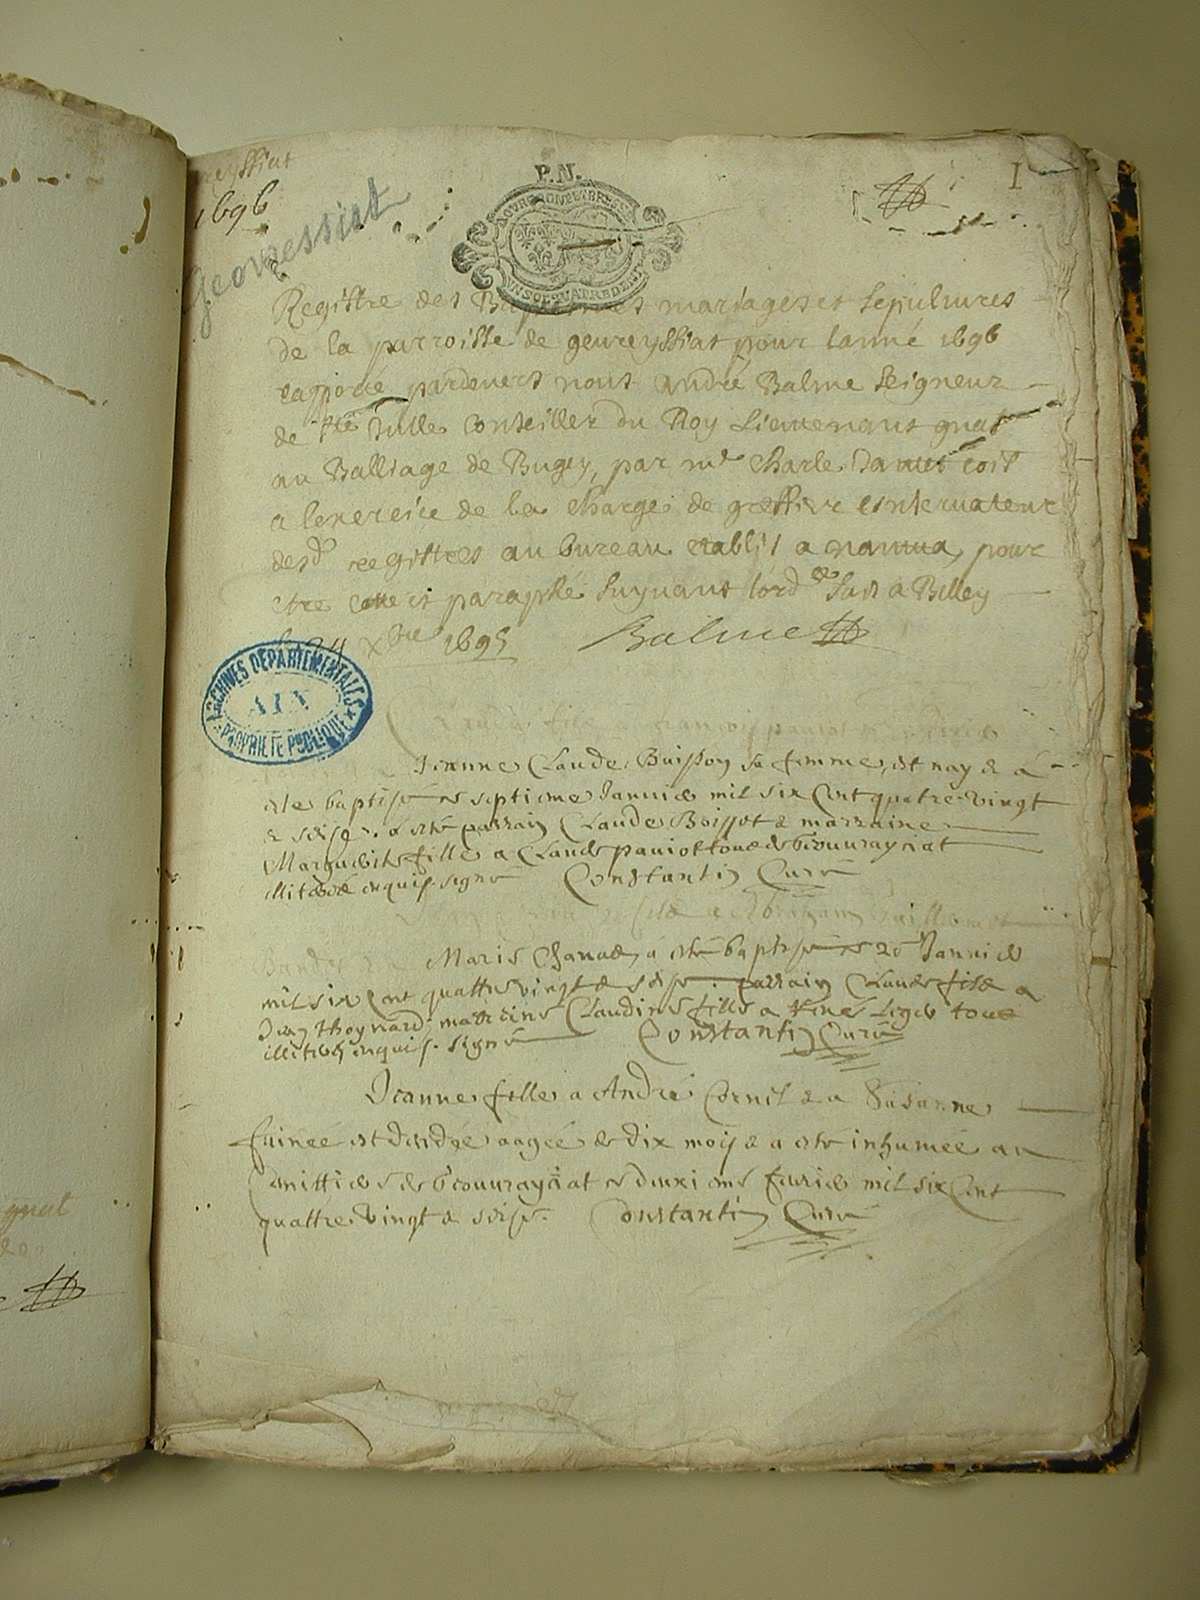 1696
P.N.
I
Geovressiat
Registre des Baptesmes mariages et sepultures
de la parroisse de geureyssiat pour lanné 1696
raportée pardevers nous André Balme seigneur
de Ste Julle conseiller du Roy Lieutenant gnal
au Balliage de Bugey, par me Charle
a lexercice de la charge de greffier conservateur
desd registres au bureau establit a nantua pour
etre cotte et paraphé suyvant lord fait a Belley
24 xbre 1695 Balme
ARCHIVES DÉPARTEMENTALES
AIN
PROPRIÉTÉ PUBLIQUE
Claude fils a francois paniot
Jeanne Claude Buisson sa femme est nay & a
este baptisé le septieme Janvier mil six cent quatre vingt
& seise. a esté parrain Claude Boissot & marraine
Marguerite fille a Claude paniot tous de Geouvrayciat
illiterés enquis. signé Constantin Curé
fils a Abraham
Marie Chanal a esté baptisé le 26 Janvier
mil six cent quattre vingt & seise. parrain Claude fils a
Jean Thoynard marreine Claudine fille a René Leger tous
illiterés enquis. signé Constantin Curé
Jeanne fille a André Cornil & a Susanne
fuinée est decedée aagée de dix mois & a esté inhumée au
Cimittiere de Geouvrayciat le deuxieme fevrier mil six Cent
quattre vingt & seise. Constantin Curé